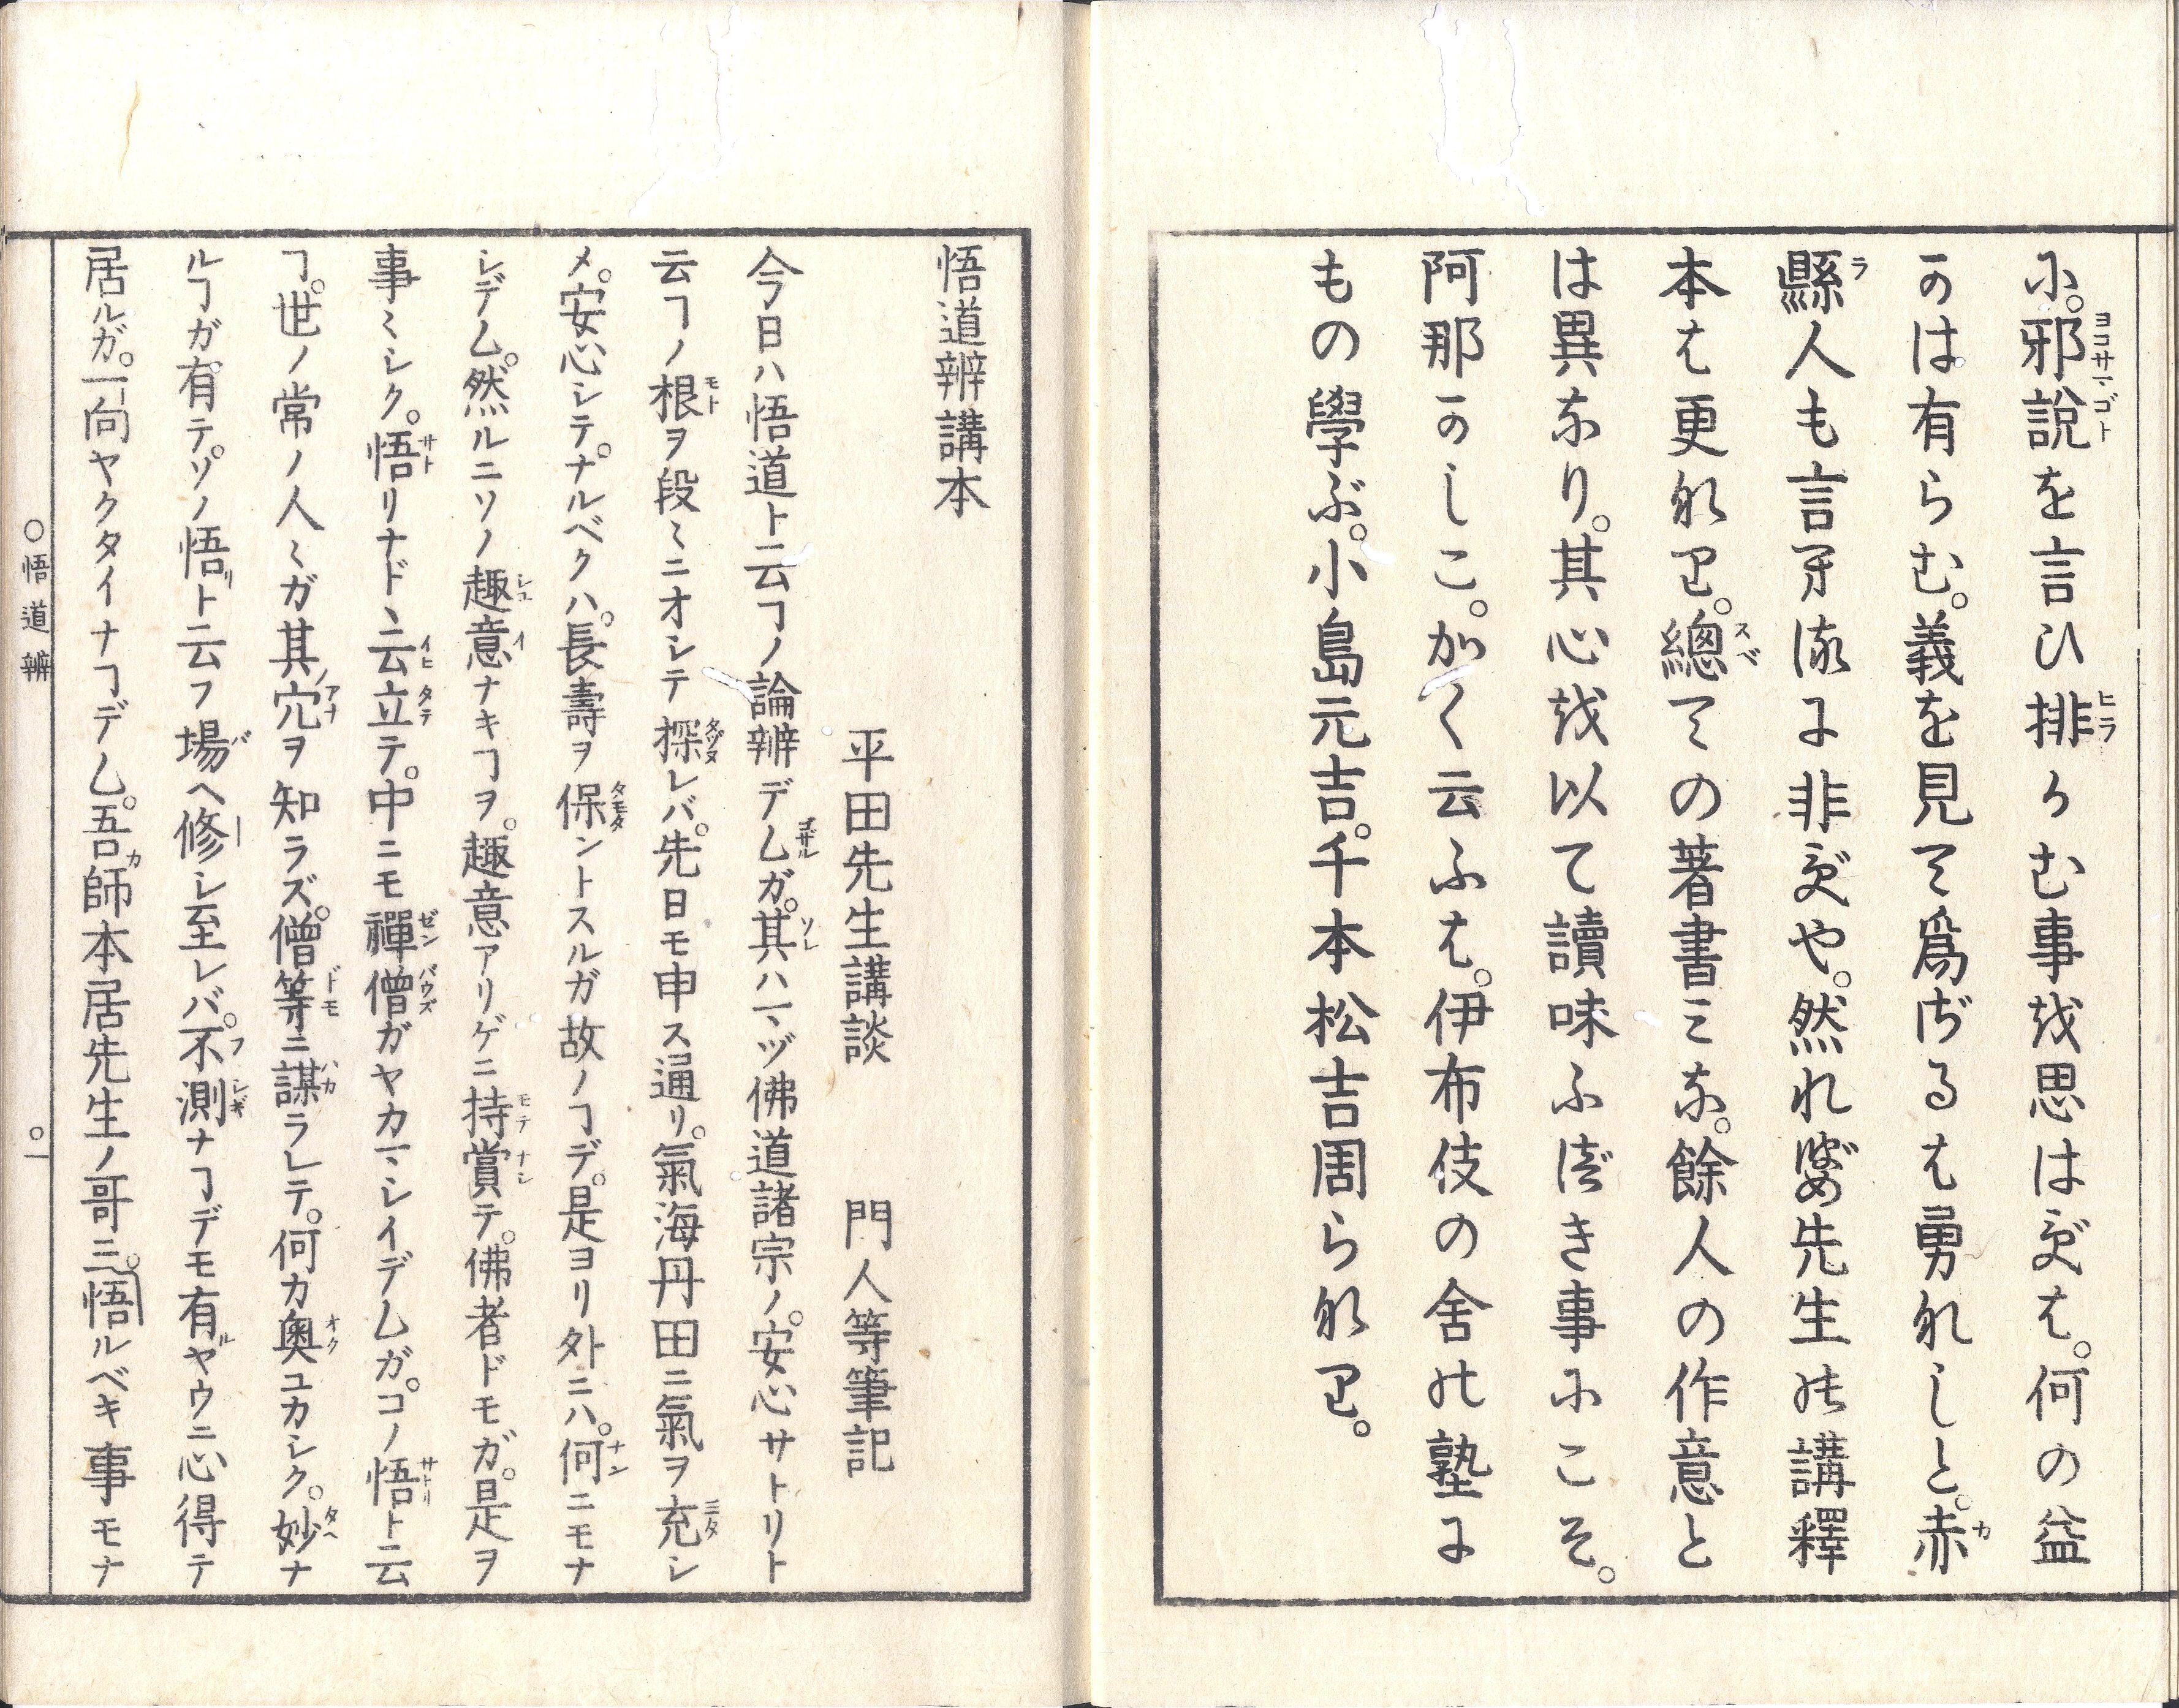 に。邪説を言ひ排かむ事を思はずは。何の益
かは有らむ。義を見て爲ざるは勇なしと。赤
縣人も言るに非ずや。然れば先生の講釋
本は更なり。總ての著書みな。餘人の作意と
は異なり。其心を以て讀味ふべき事にこそ。
阿那かしこ。かく云ふは。伊布伎の舍の塾に
もの學ぶ。小島元吉。千本松吉周らなり。
悟道辨講本
平田先生講談 門人等筆記
今日ハ悟道ト云ヿノ論辨デムガ。其ハマヅ佛道諸宗ノ。安心サトリト
云ヿノ根ヲ段〻ニオシテ探レバ。先日モ申ス通リ。氣海丹田ニ氣ヲ充シ
メ。安心シテ。ナルベクハ。長壽ヲ保ントスルガ故ノヿデ。是ヨリ外ニハ。何ニモナ
シデム。然ルニソノ趣意ナキヿヲ。趣意アリゲニ持賞テ。佛者ドモガ。是ヲ
事〻シク。悟リナドヽ云立テ。中ニモ禪僧ガヤカマシイデムガ。コノ悟ト云
ヿ。世ノ常ノ人〻ガ其穴ヲ知ラズ。僧等ニ謀ラレテ。何カ奥ユカシク。妙ナ
ルヿガ有テ。ソノ悟ト云フ場ヘ修シ至レバ。不測ナヿデモ有ヤウニ心得テ
居ルガ。一向ヤクタイナヿデム。吾師本居先生ノ哥ニ。悟ルベキ事モナ
○悟道辨 ○一